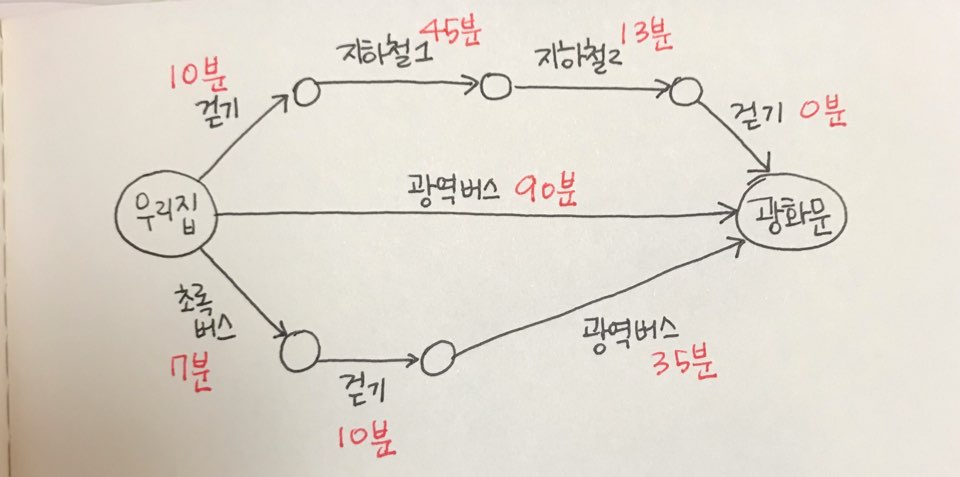 10분
걷기
지하철1 45분
지하철2 13분
걷기 0분
우리집
광역버스 90분
광화문
초록
버스
7분
걷기
10분
광역버스
35분